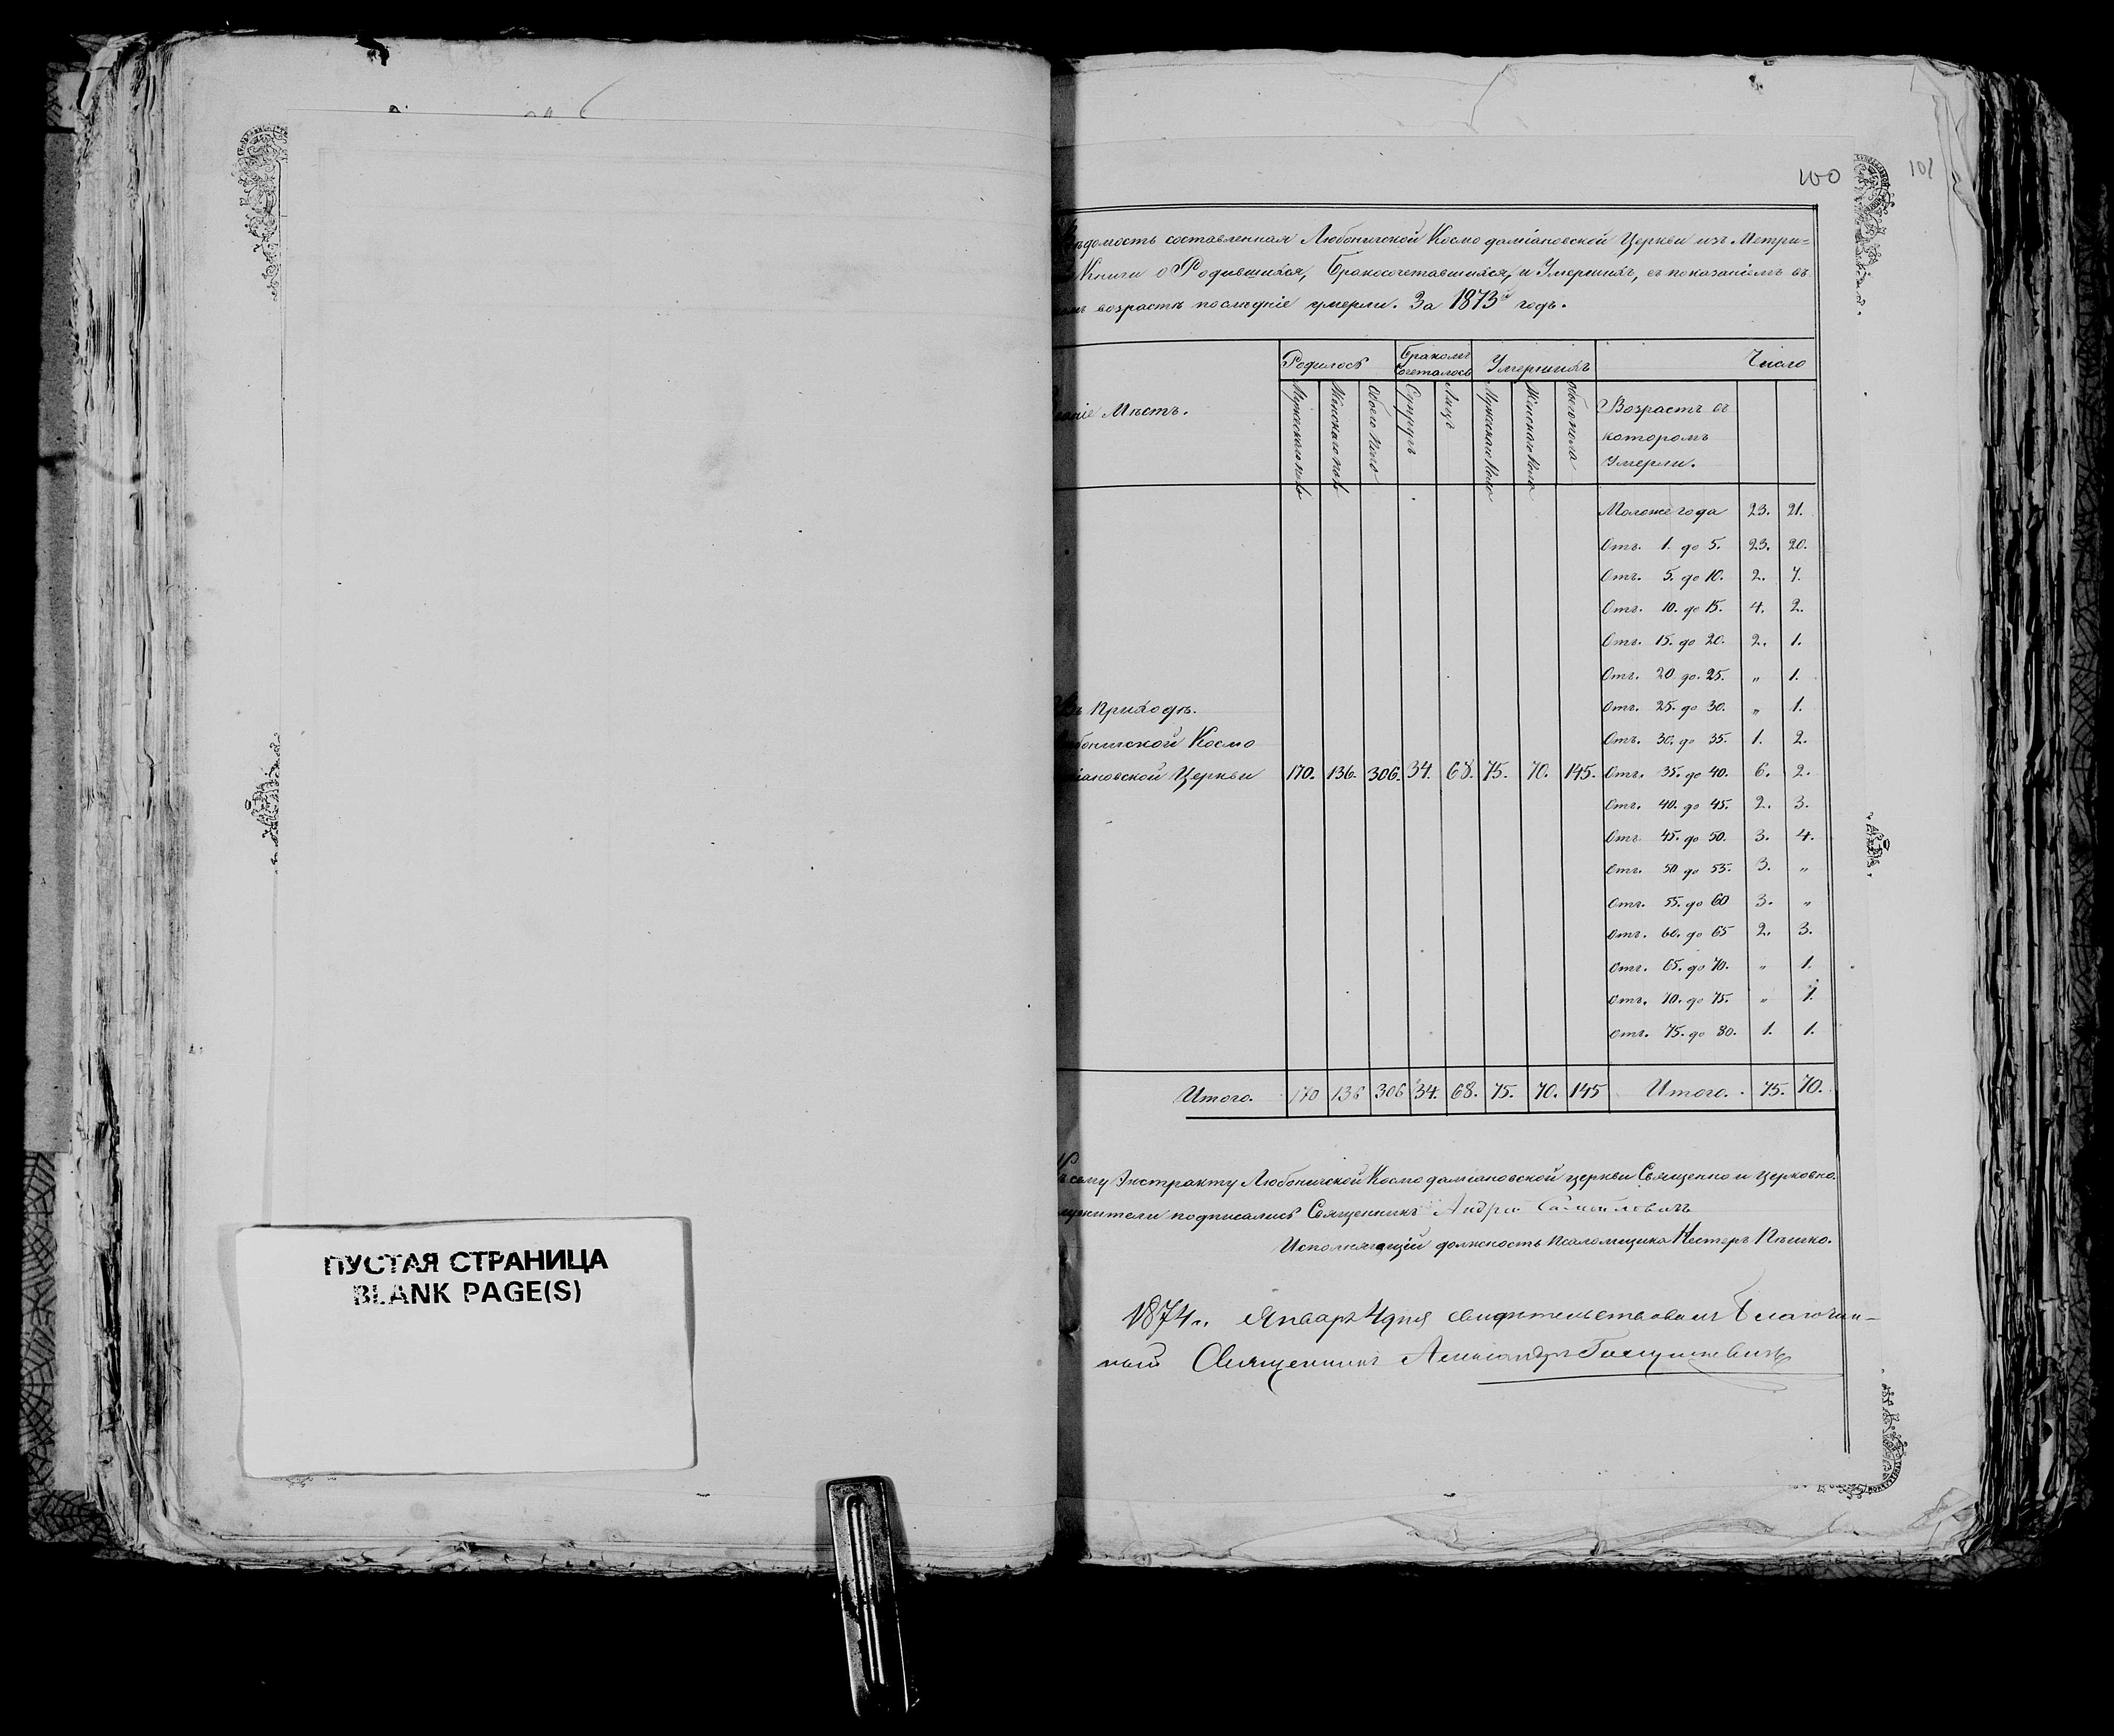 ПУСТАЯ СТРАНИЦА
BLANK PAGE(S)
100
101
ѣдомость составленная Любоничской Космодаміановской Церкви изъ Метри=
Книги о Родившихся, Бракосочетавшихся, и Умершихъ, съ показаніемъ въ
возрастѣ послѣдніе умерли. За 1873й годъ.
Родилось Бракомъ Сочеталось Умершихъ Число
Мужескаго пола Женскаго пола Обоего пола Супругъ Лицъ Мужескаго пола Женскаго пола Обоего пола
ваніе Мѣстъ. Возрастъ въ
которомъ
Умерли.
Моложе года 23. 21.
Отъ. 1. до 5. 23. 20.
Отъ. 5. до 10. 2. 7.
Отъ. 10. до 15. 4. 2.
Отъ. 15. до 20. 2. 1.
Отъ. 20 до. 25. „ 1.
Въ Приходѣ. Отъ. 25. до 30. „ 1.
боничской Космо Отъ. 30. до 35. 1. 2.
іановской Церкви 170. 136. 306. 34. 68. 75. 70. 145. Отъ. 35. до 40. 6. 2.
Отъ. 40. до 45. 2. 3.
Отъ 45. до 50. 3. 4.
Отъ. 50 до 55. 3. „
Отъ. 55. до 60 3. „
Отъ. 60. до 65 2. 3.
Отъ. 65. до 70. „ 1.
Отъ. 70. до 75. „ 1.
Отъ. 75. до 80. 1. 1.
Итого. 170 136 306 34. 68. 75. 70. 145 Итого. 75. 70.
сему Экстракту Любоничской Космодаміановской церкви Священно и Церковно.
служители подписались Священникъ Андрей Самойловичъ
Исполняющій должность Псаломщика Нестеръ Пѣшко.
1874 г. Январь 4 дня свидѣтельствовалъ Благочин-
ный Священникъ Александръ